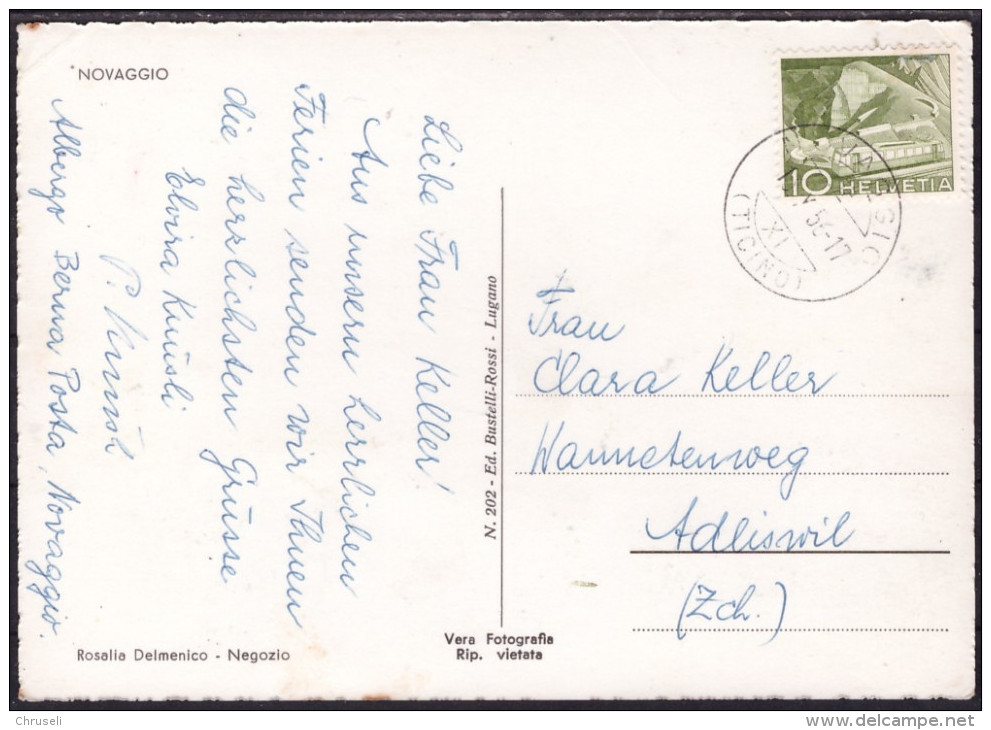 NOVAGGIO
Liebe Frau Keller!
Aus unsern herrlichen
Ferien senden wir Ihnen
die herzlichsten Grüsse
Elvira Knüsli
P.
Albergo Berna Posta, Novaggio.
Rosalia Delmenico - Negozio
N. 202 - Ed. Bustelli-Rossi - Lugano
Vera Fotografia
Rip. vietata
10 HELVETIA
(TICINO)
XI
Frau
Clara Keller
Wannetenweg
Adliswil
(Zch.)
Chruseli
www.delcampe.net